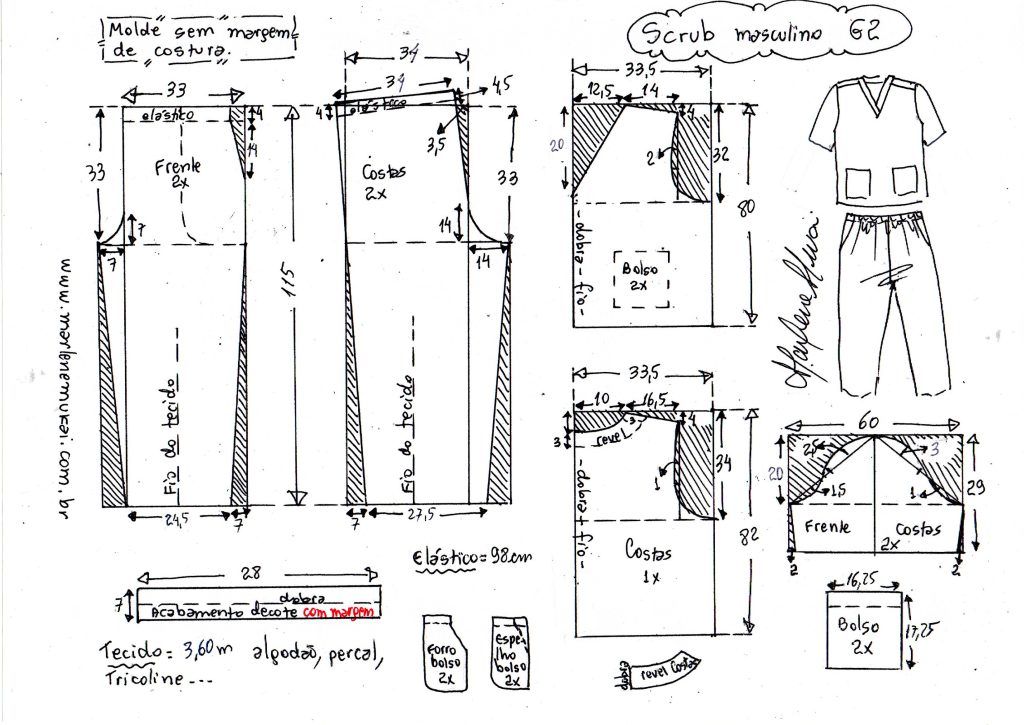 Molde sem margem
de costura.
Scrub masculino G2
33
elástico
4
14
33
Frente
2x
7
7
115
Fio do tecido
24,5
7
34
34
4,5
4
elástico
3,5
Costas
2x
33
14
14
Fio do tecido
7
27,5
33,5
12,5
14
4
20
2
32
80
dobra - fio -
Bolso
2x
33,5
10
16,5
3
4
3
revel
1
34
82
dobra + fio -
Costas
1x
60
20
2,5
3
1,5
1
29
Frente
Costas
2x
2
2
16,25
Bolso
2x
17,25
28
7
dobra
Acabamento decote com margem
Elástico = 98cm
Tecido = 3,60m algodão, percal,
Tricoline...
Forro
bolso
2x
Espe-
lho
bolso
2x
dobra
revel Costas
Marlene Mukai
www.marlenemukai.com.br